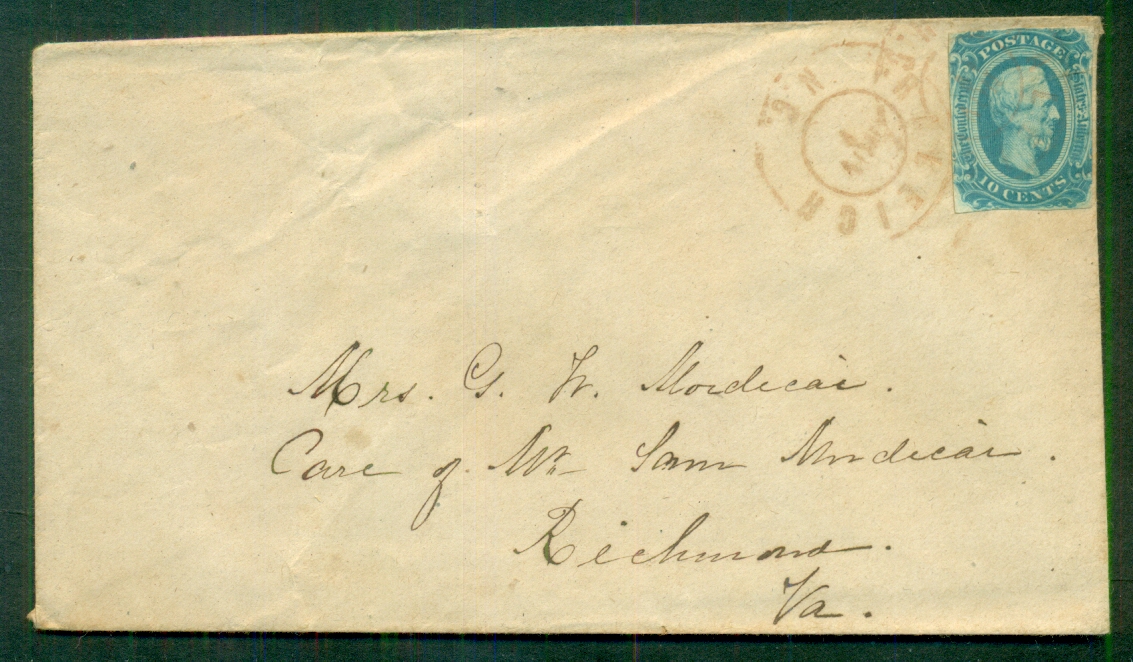 POSTAGE
The Confederate States of America
10 CENTS
RALEIGH N.C.
Mrs. G. W. Mordecai.
Care of Mr Sam Mordecai.
Richmond.
Va.